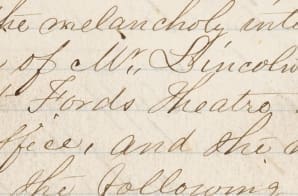 the melancholy
of Mr. Lincoln
Fords Theatre
and the
the following